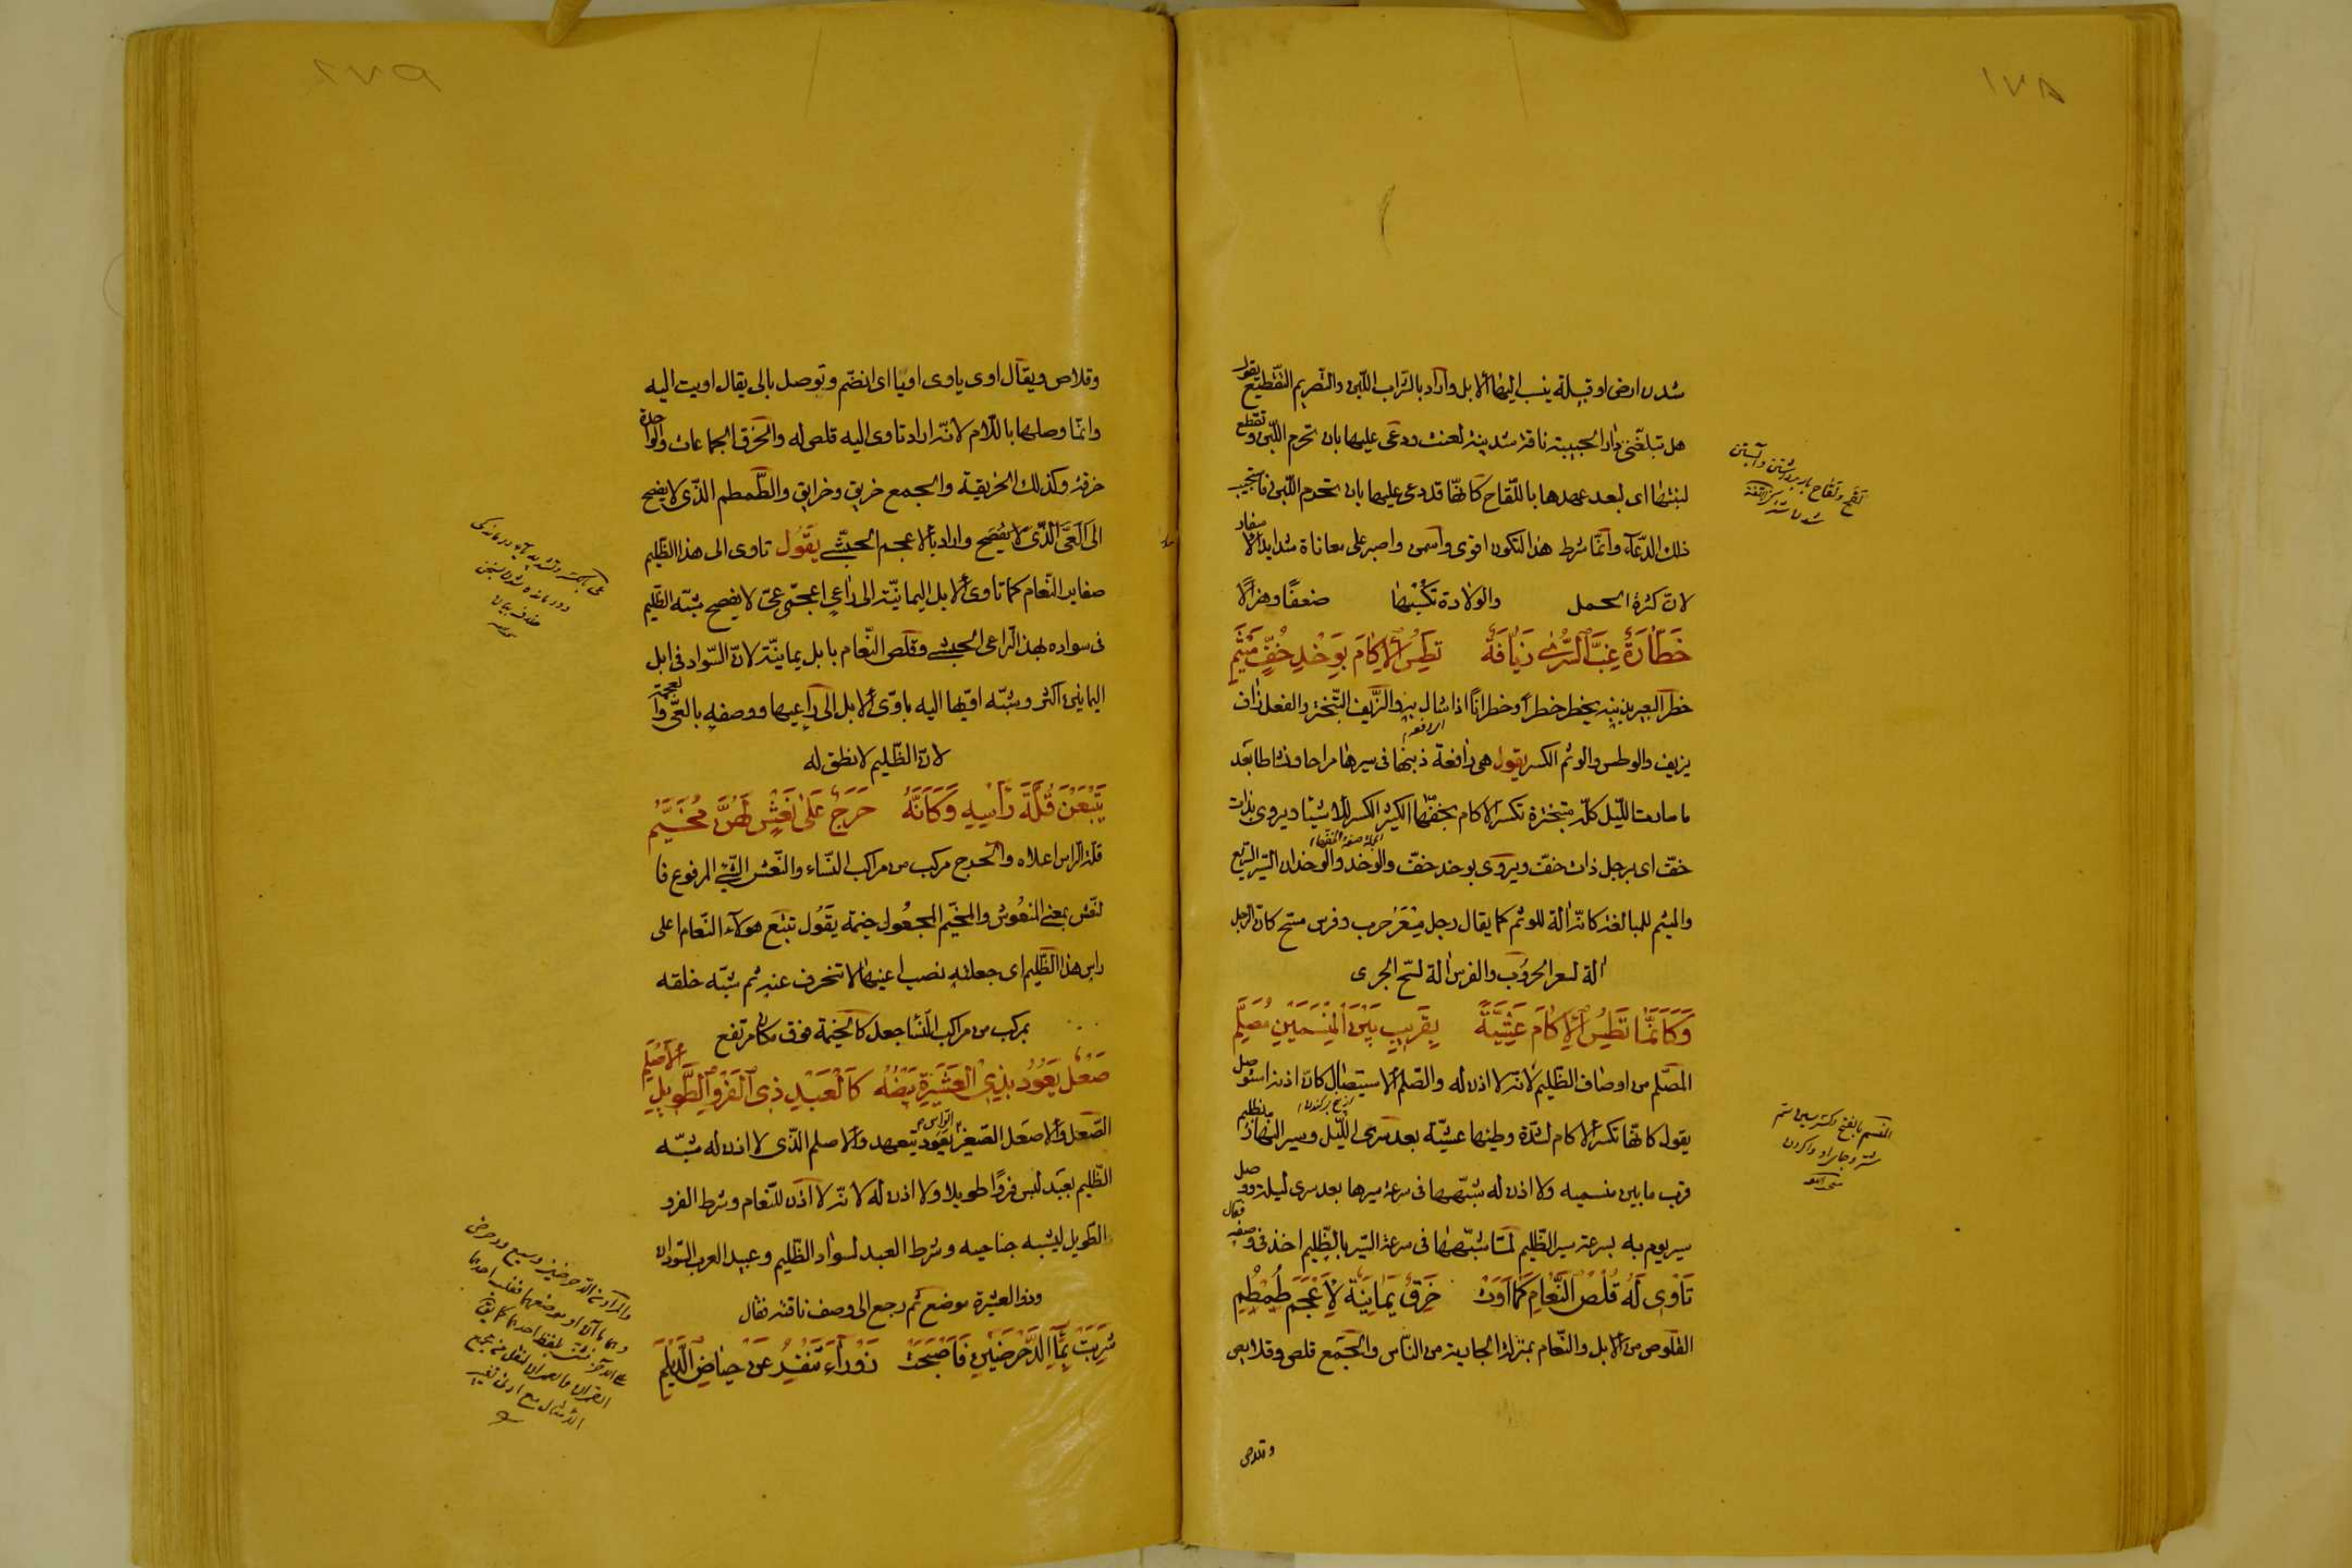 شدن ارض او قبيلة ينسب اليها الابل واراد بالشراب اللبن والتصريم التقطيع يقول
هل تبلغنى دار الحبيبة ناقة شدنية لعنت ودعى عليها بان تحرم اللبن وتقطع
لبنها اى لبعد عهدها باللقاح كانها قد دعى عليها بان تحرم اللبن فاستجيب
ذلك الدعاء وانما شرط هذا لتكون اقوى واسمن واصبر على معاناة شدايد الاسفار
لان كثرة الحمل والولادة تكسبها ضعفا وهزالا
خَطَّارَةٌ غِبَّ السُّرٰى زَيَّافَةٌ تَطِسُ الْاِكَامَ بِوَخْدِ خُفٍّ مِيْثَمِ
خطر البعير بذنبه يخطر خطرا وخطرانا اذا شال به والزيف التبختر والفعل زاف
يزيف والوطس والوثم الكسر يقول هى رافعة ذنبها فى سيرها مراحا ونشاطا بعد
ما سارت الليل كله متبخترة تكسر الاكام بخفها الكثير الكسر للاشيا ويروى بذات
خف اى برجل ذات خف ويروى بوخد خف والوخد والوخدان السير السريع
والميثم للمبالغة كانه الة للوثم كما يقال رجل مسعر حرب وفرس مسح كان الرجل
الة لسعر الحروب والفرس الة لسح الجرى
وَكَاَنَّمَا تَطِسُ الْاِكَامَ عَشِيَّةً بِقَرِيبِ بَيْنَ الْمَنْسِمَيْنِ مُصَلَّمِ
المصلم من اوصاف الظليم لانه لا اذن له والصلم الاستيصال كان اذنه استوصل
يقول كانها تكسر الاكام لشدة وطئها عشية بعد سرى الليل وسير النهار بظليم
قرب ما بين منسميه ولا اذن له شبهها فى سرعة سيرها بعد سرى ليلة ووصل
سير يوم به بسرعة سير الظليم لما شبهها فى سرعة السير بالظليم اخذ فى وصفه فقال
تَأوِى لَهُ قُلُصُ النَّعَامِ كَمَا اَوَتْ حِزَقٌ يَمَانِيَةٌ لِاَعْجَمَ طُمْطُمِ
القلوص من الابل والنعام بمنزلة الجارية من الناس والجمع قلص وقلايص
وقلاص
وقلاص ويقال اوى ياوى اويا اى انضم وتوصل بالى يقال اويت اليه
وانما وصلها باللام لانه اراد تاوى اليه قلص له والحزق الجماعات والواحدة
حزقة وكذلك الحزيقة والجمع حزيق وحزايق والطمطم الذى لا يفصح
الى العى الذى لا يفصح واراد بالاعجم الحبشى يقول تاوى الى هذا الظليم
صغاير النعام كما تاوى الابل اليمانية الى راعى اعجمى عى لا يفصح شبه الظليم
فى سواده بهذا الراعى الحبشى وقلص النعام بابل يمانية لان السواد فى ابل
اليمانين اكثر وشبه اويها اليه باوى الابل الى راعيها ووصفه بالعى والعجمة
لان الظليم لا نطق له
يَتْبَعْنَ قُلَّةَ رَأْسِهِ وَكَاَنَّهُ حَرَجٌ عَلٰى نَعْشٍ لَهُنَّ مُخَيَّمِ
قلة الراس اعلاه والحرج مركب من مراكب النساء والنعش الشئ المرفوع فا
لنعش بمعنى المنعوش والمخيم المجعول خيمة يقول تتبع هولاء النعام اعلى
راس هذا الظليم اى جعلته نصب اعينها لا تنحرف عنه ثم شبه خلقه
بمركب من مراكب النسا جعل كالخيمة فوق مكان مرتفع
صَعْلٍ يَعُودُ بِذِى الْعُشَيْرَةِ بَيْضَهُ كَالْعَبْدِ ذِى الْفَرْوِ الطَّوِيلِ الْاَصْلَمِ
الصعل والاصعل الصغير الراس يعود يتعهد والاصلم الذى لا اذن له شبه
الظليم بعبد لبس فروا طويلا ولا اذن له لانه لا اذن للنعام وشرط الفرو
الطويل ليشبه جناحيه وشرط العبد لسواد الظليم وعبيد العرب السودان
وذو العشيرة موضع ثم رجع الى وصف ناقته فقال
شَرِبَتْ بِمَاءِ الدُّحْرُضَيْنِ فَاَصْبَحَتْ زَوْرَاءَ تَنْفِرُ عَنْ حِيَاضِ الدَّيْلَمِ